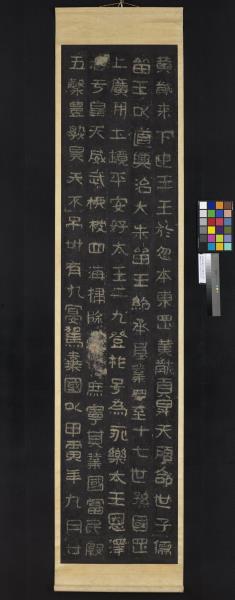 黃龍來下迎王王於忽本東罡龍頁昇天顧命世子儒
留王以道興治大朱留王紹承基業至十七世孫國罡
上廣開土境平安好太王二九登祚号為永樂太王恩澤
于皇天威武被四海掃除庶寧其業國富民殷
五穀豊熟昊天不弔卅有九宴駕棄國以甲寅年九月廿